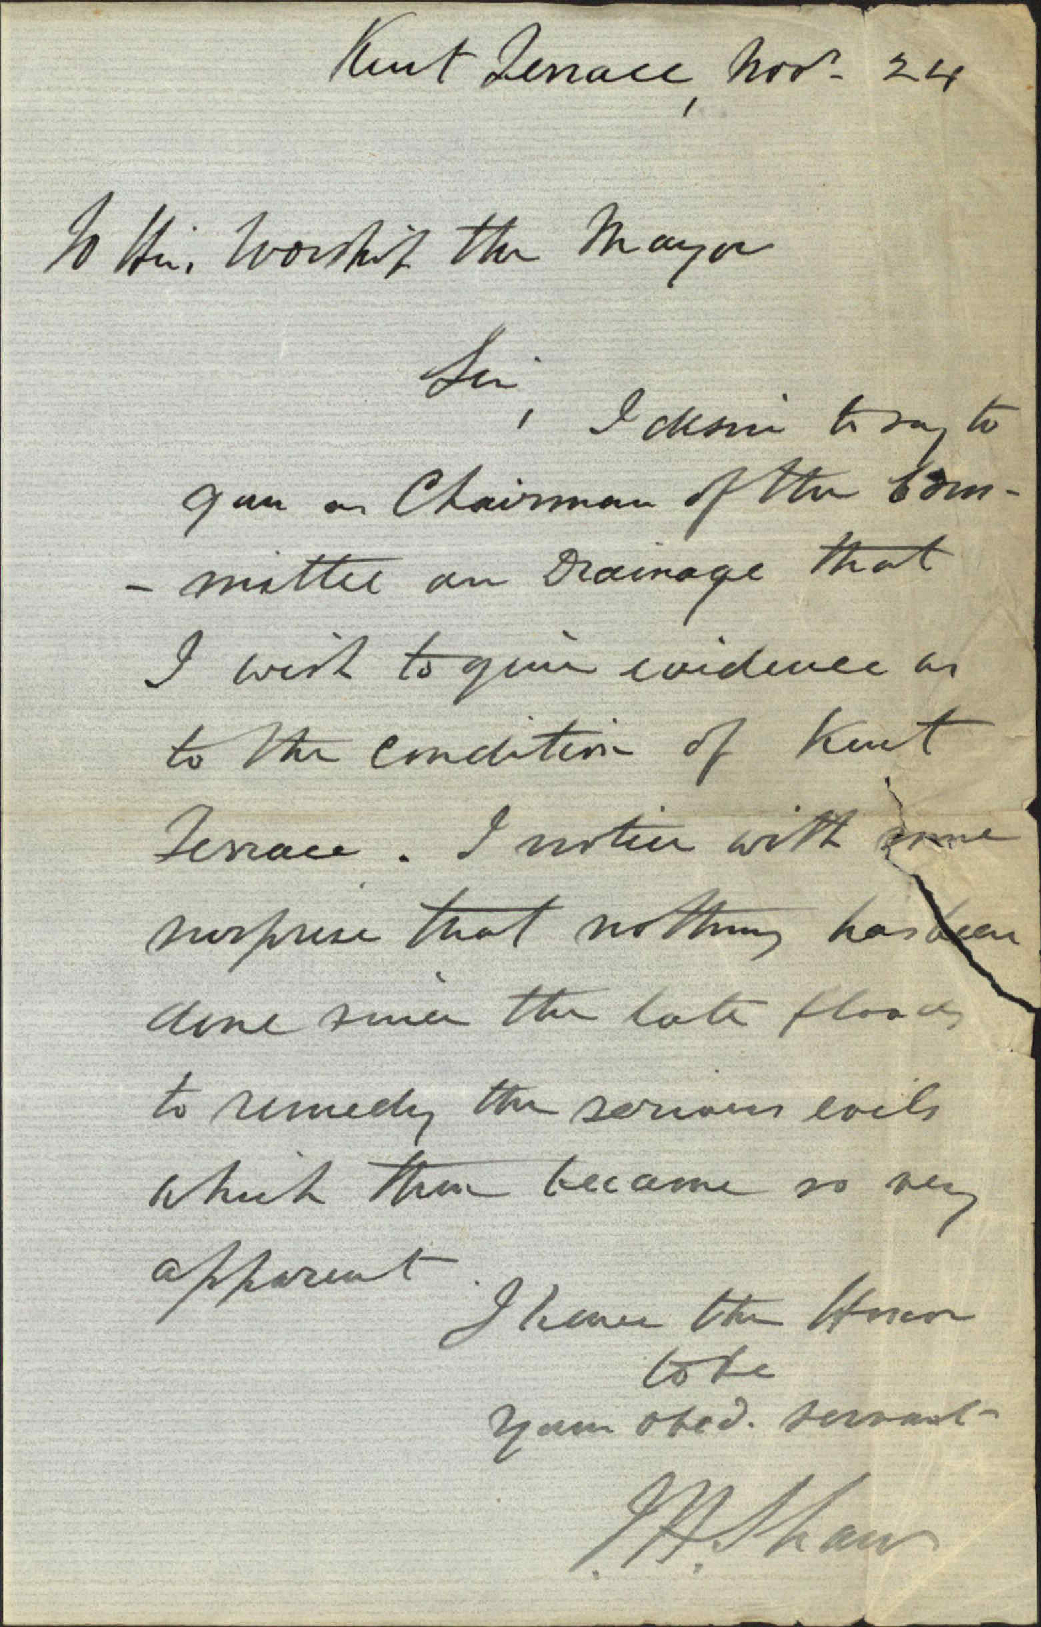 Kent Terrace, Novr. 24
To His Worship the Mayor
Sir,
I desire to say to
you as Chairman of the Com-
- mittee on Drainage that
I wish to give evidence as
to the condition of Kent
Terrace. I notice with some
surprise that nothing has been
done since the late floods
to remedy the serious evils
which then became so very
apparent.
I have the Honor
to be
Your obed. servant
J. H. Shaw